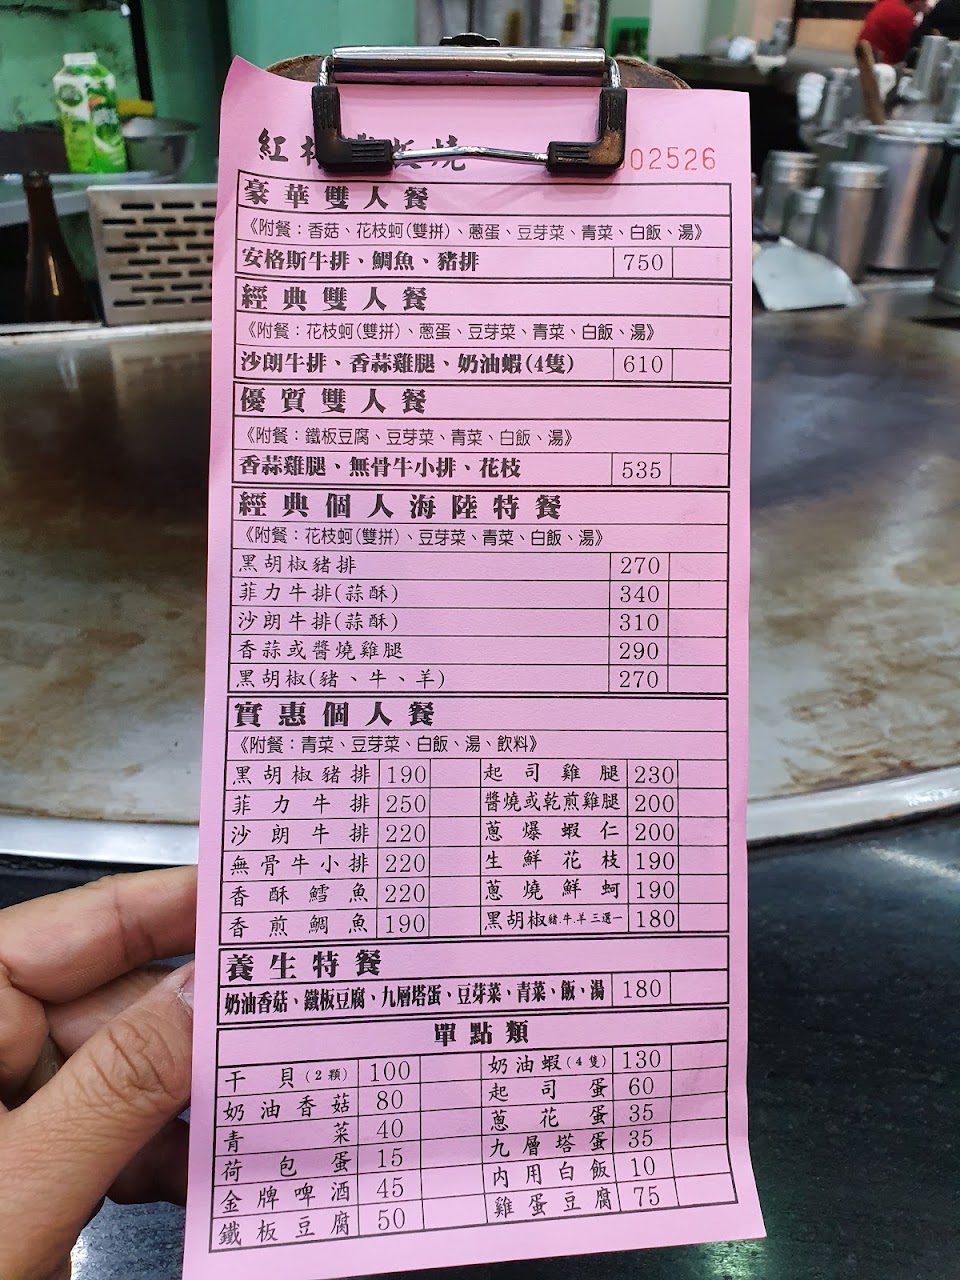 紅 燒 02526
豪華雙人餐
《附餐：香菇、花枝蚵(雙拼)、蔥蛋、豆芽菜、青菜、白飯、湯》
安格斯牛排、鯛魚、豬排 750
經典雙人餐
《附餐：花枝蚵(雙拼)、蔥蛋、豆芽菜、青菜、白飯、湯》
沙朗牛排、香蒜雞腿、奶油蝦(4隻) 610
優質雙人餐
《附餐：鐵板豆腐、豆芽菜、青菜、白飯、湯》
香蒜雞腿、無骨牛小排、花枝 535
經典個人海陸特餐
《附餐：花枝蚵(雙拼)、豆芽菜、青菜、白飯、湯》
黑胡椒豬排 270
菲力牛排(蒜酥) 340
沙朗牛排(蒜酥) 310
香蒜或醬燒雞腿 290
黑胡椒(豬、牛、羊) 270
實惠個人餐
《附餐：青菜、豆芽菜、白飯、湯、飲料》
黑胡椒豬排 190 起司雞腿 230
菲力牛排 250 醬燒或乾煎雞腿 200
沙朗牛排 220 蔥爆蝦仁 200
無骨牛小排 220 生鮮花枝 190
香酥鱈魚 220 蔥燒鮮蚵 190
香煎鯛魚 190 黑胡椒豬.牛.羊三選一 180
養生特餐
奶油香菇、鐵板豆腐、九層塔蛋、豆芽菜、青菜、飯、湯 180
單點類
干貝(2顆) 100 奶油蝦(4隻) 130
奶油香菇 80 起司蛋 60
青菜 40 蔥花蛋 35
荷包蛋 15 九層塔蛋 35
金牌啤酒 45 內用白飯 10
鐵板豆腐 50 雞蛋豆腐 75